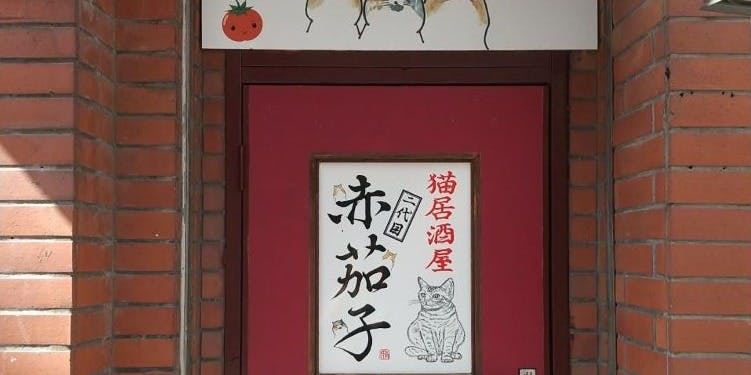 猫居酒屋
二代目
赤茄子